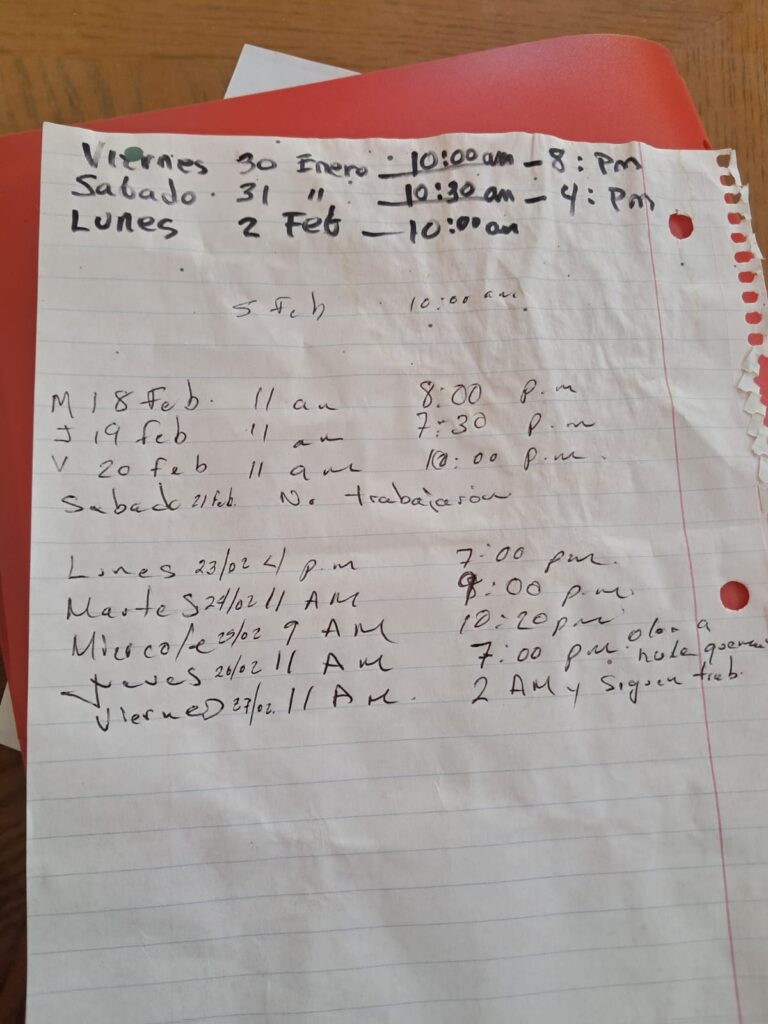 Viernes 30 Enero - 10:00 am - 8: Pm
Sabado. 31 " - 10:30 am - 4: Pm
Lunes 2 Feb - 10:00 am
5 Feb 10:00 am
M 18 Feb. 11 am 8:00 p.m
J 19 feb 11 am 7:30 p.m
V 20 feb 11 am 10:00 p.m.
Sabado 21 feb. No trabajaron
Lunes 23/02 4 p.m 7:00 pm.
Martes 24/02 11 AM 9:00 p.m.
Miercole 25/02 9 AM 10:20 pm
Jueves 26/02 11 AM 7:00 pm. olor a hule quema
Viernes 27/02. 11 AM. 2 AM y siguen trab.